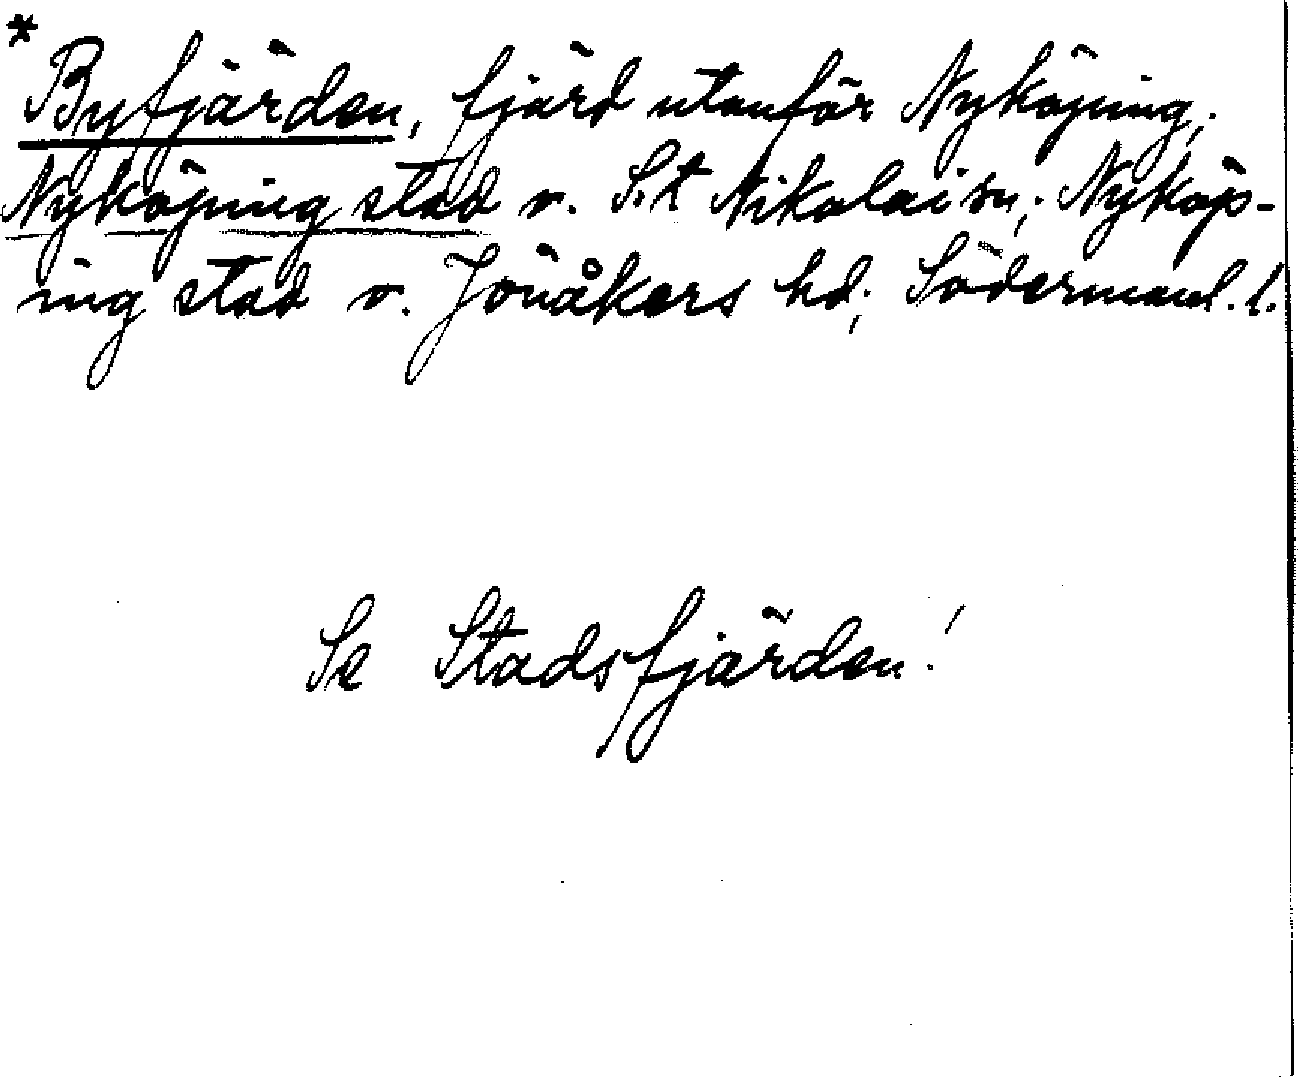 *
Byfjärden, fjärd utanför Nyköping;
Nyköping stad o. S:t Nikolai sn; Nyköp-
ing stad o. Jönåkers hd; Södermanl. l.
Se Stadsfjärden!